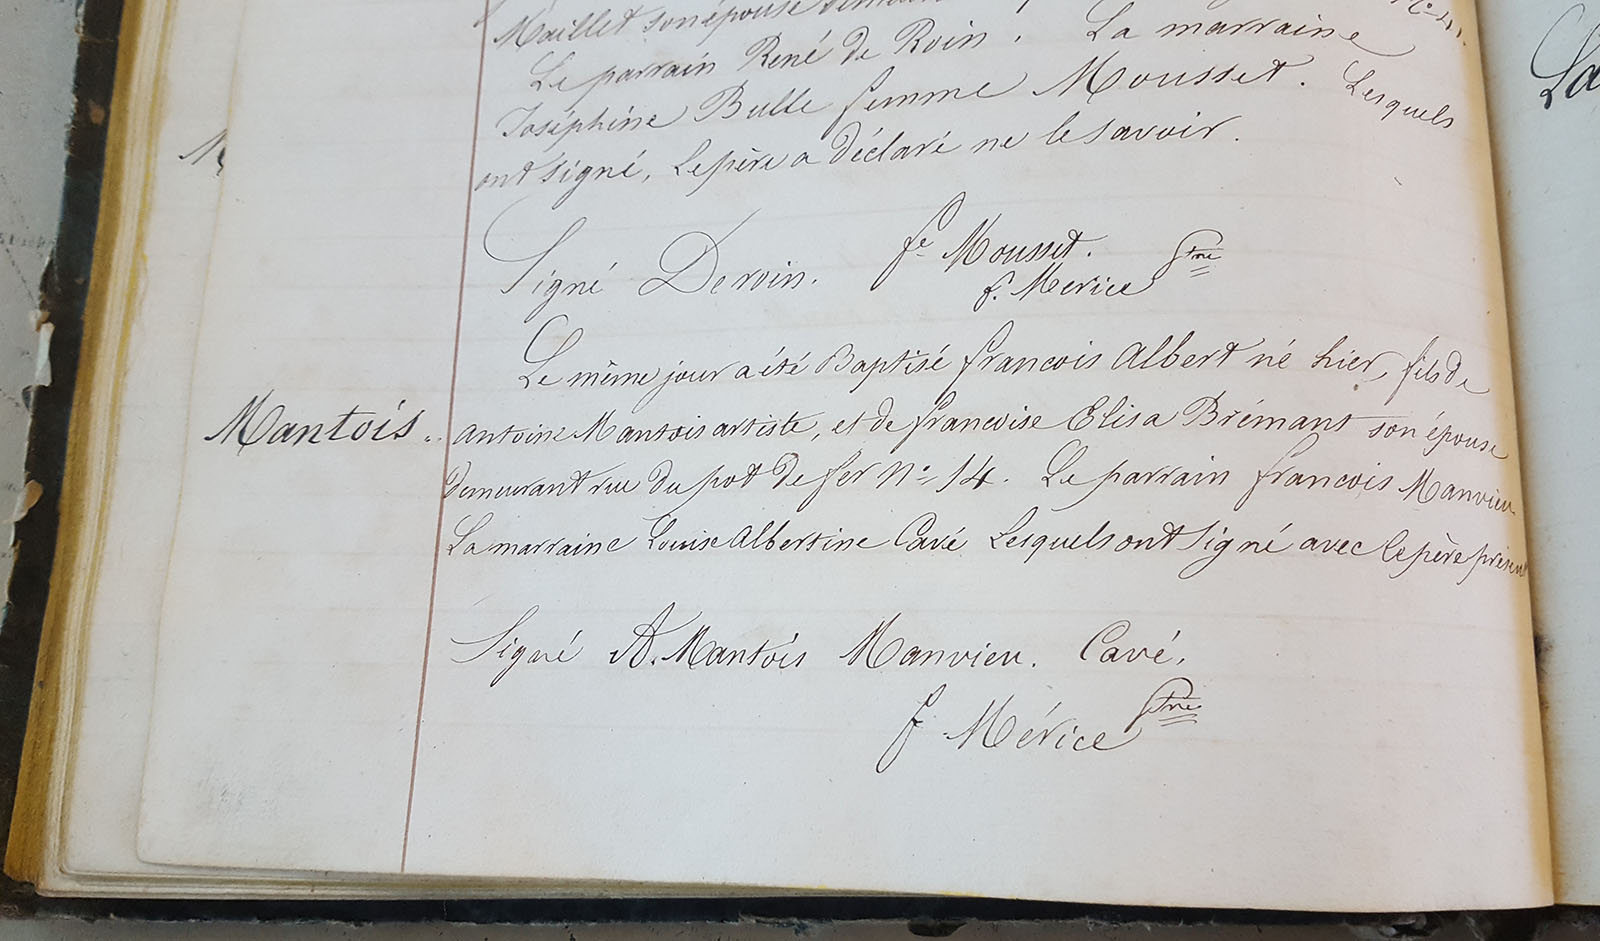 Maillet son épouse
Le parrain René de Roin. La marraine
Joséphine Bulle femme Mousset. Lesquels
ont signé, le père a déclaré ne le savoir.
Signé Deroin. fe Mousset.
f. Merice Ptre
Le même jour a été Baptisé francois Albert né hier, fils de
Mantois .. antoine Mantois artiste, et de francoise Elisa Brémant son épouse
demeurant rue du pot de fer No 14. Le parrain francois Manvieu
La marraine Louise Albertine Cavé Lesquels ont signé avec le père présent
Signé A. Mantois Manvieu. Cavé.
f. Mérice Ptre
La